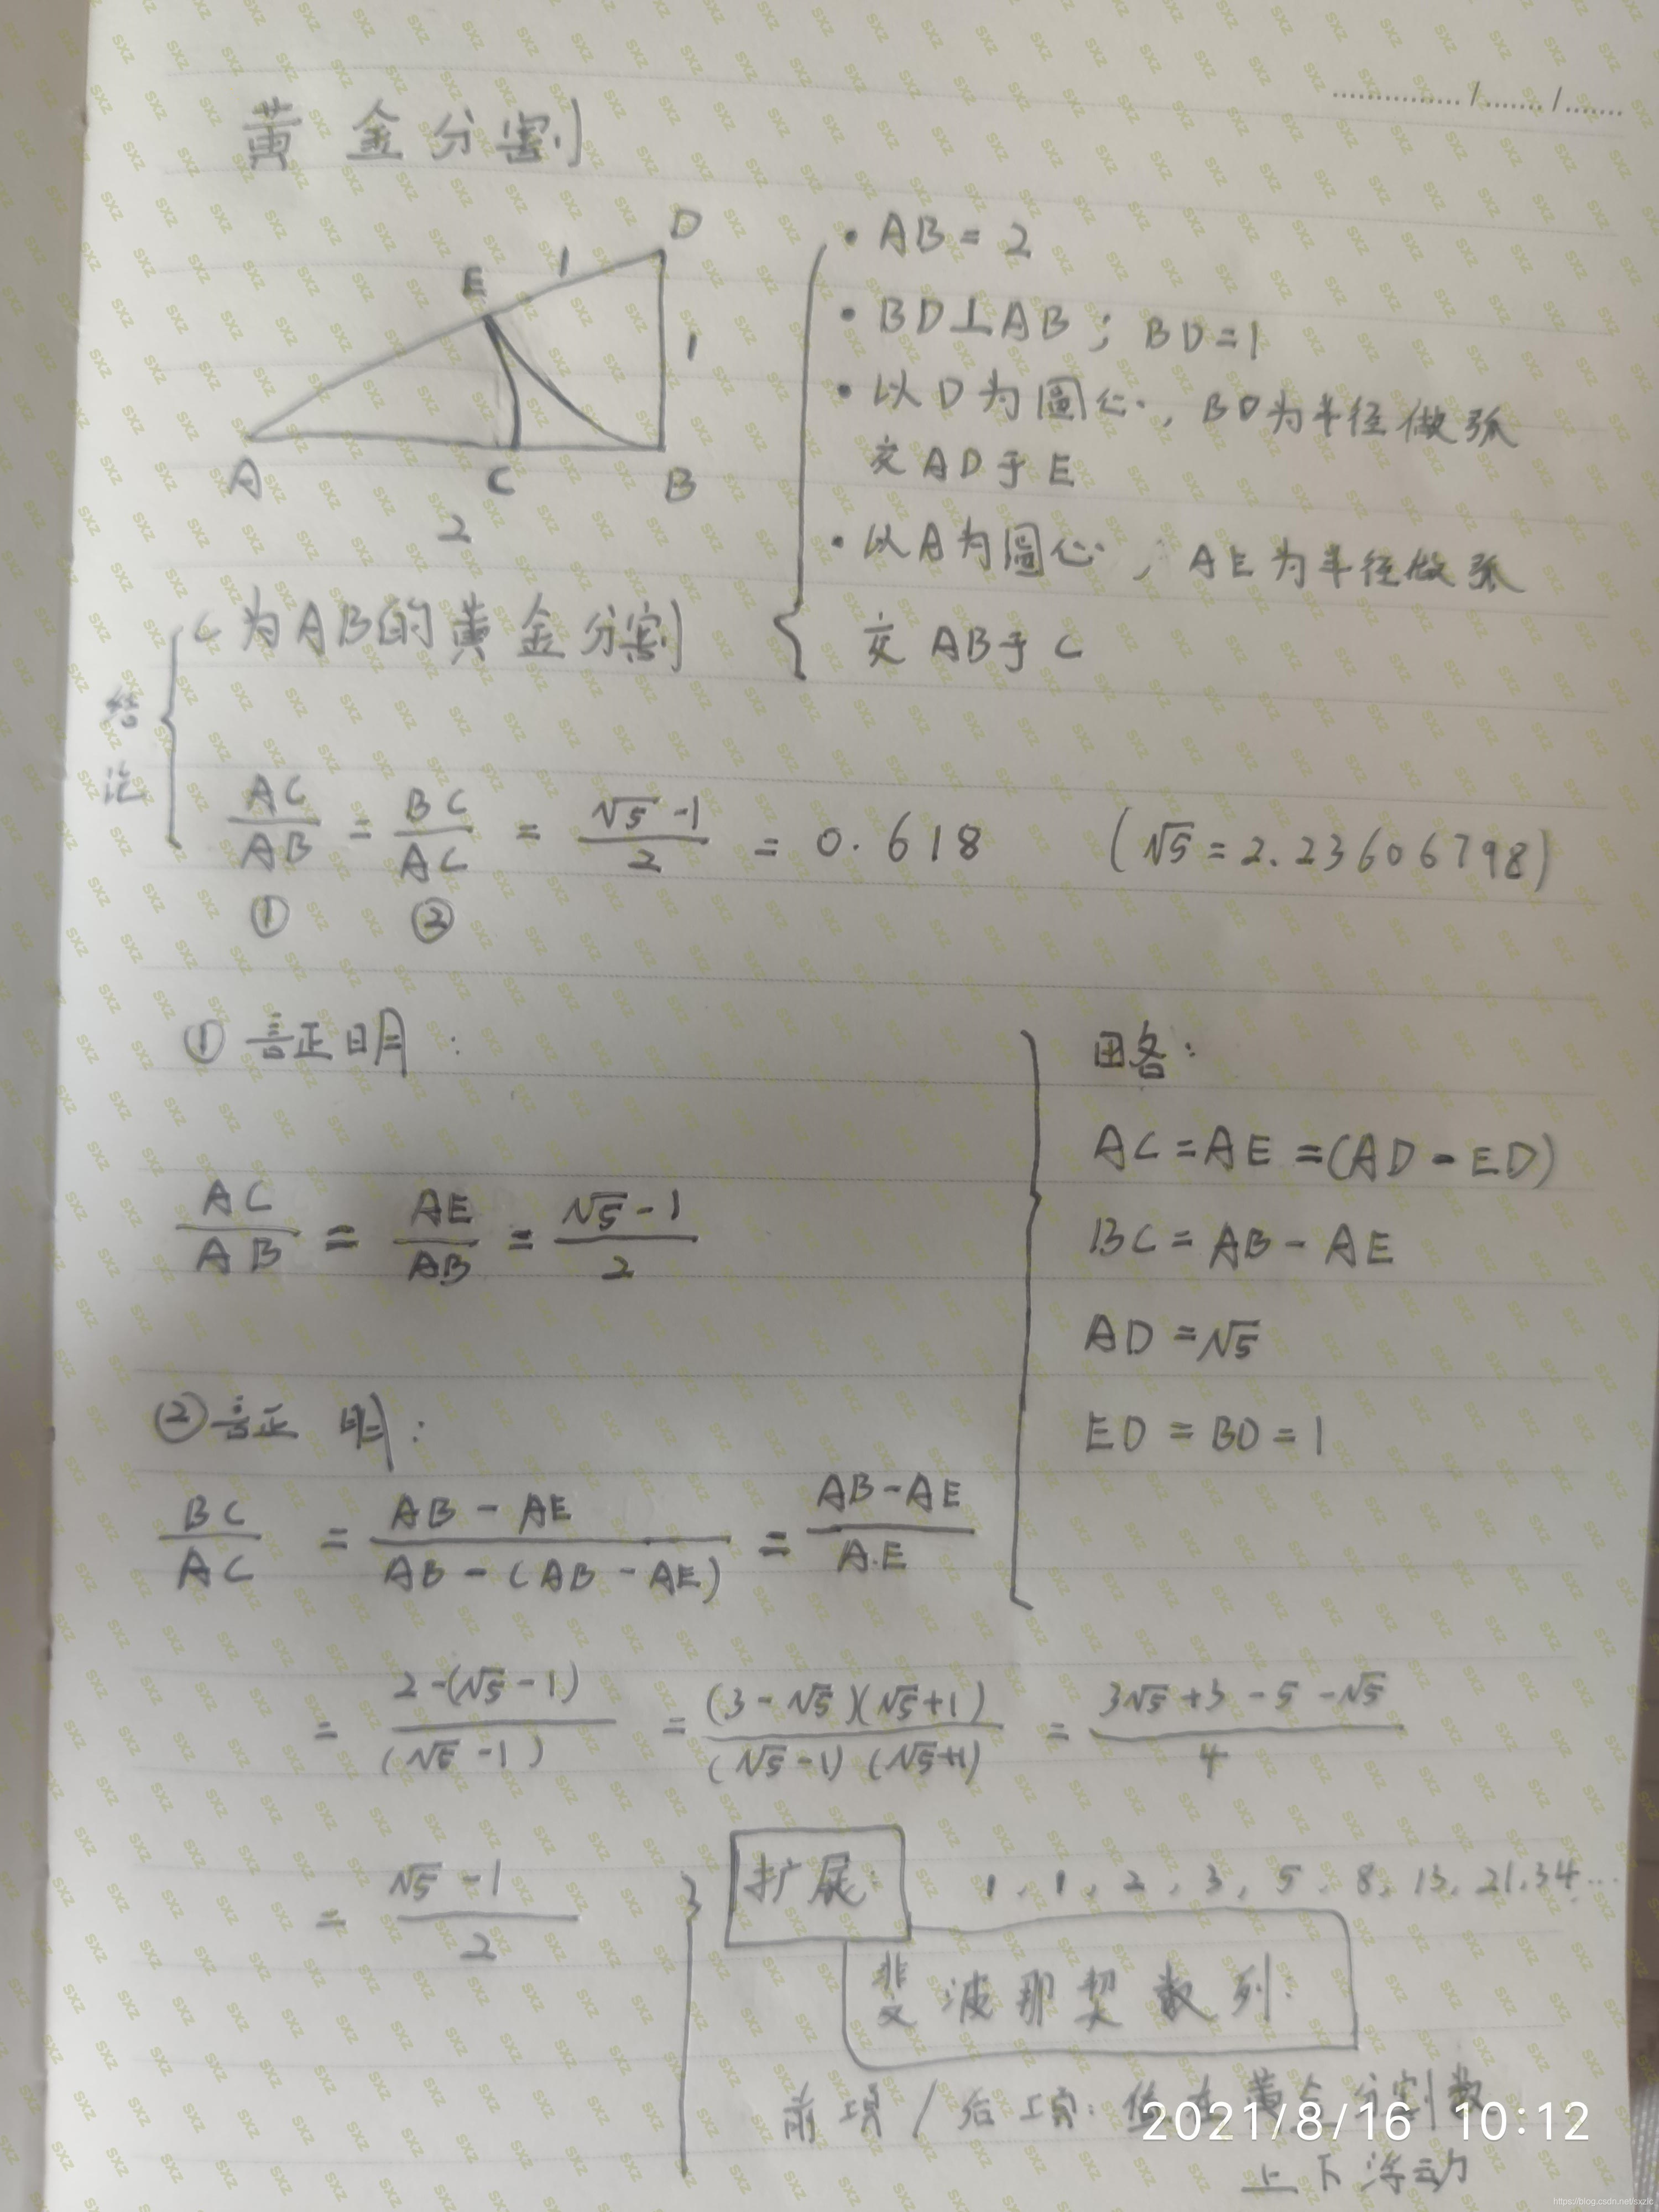 黄金分割
D
E
1
1
A
C
B
2
• AB = 2
• BD⊥AB ; BD=1
• 以D为圆心, BD为半径做弧
交AD于E
• 以A为圆心, AE为半径做弧
交AB于C
结论
C为AB的黄金分割
AC/AB = BC/AC = (√5-1)/2 = 0.618 (√5 = 2.23606798)
① ②
① 证明:
AC/AB = AE/AB = (√5-1)/2
② 证明:
BC/AC = (AB-AE)/(AB-(AB-AE)) = (AB-AE)/AE
= (2-(√5-1))/(√5-1) = ((3-√5)(√5+1))/((√5-1)(√5+1)) = (3√5+3-5-√5)/4
= (√5-1)/2
略:
AC=AE=(AD-ED)
BC=AB-AE
AD=√5
ED=BD=1
扩展: 1, 1, 2, 3, 5, 8, 13, 21, 34...
斐波那契数列:
前项/后项: 值在黄金分割数
上下浮动
2021/8/16 10:12
https://blog.csdn.net/sxzlc
SXZ